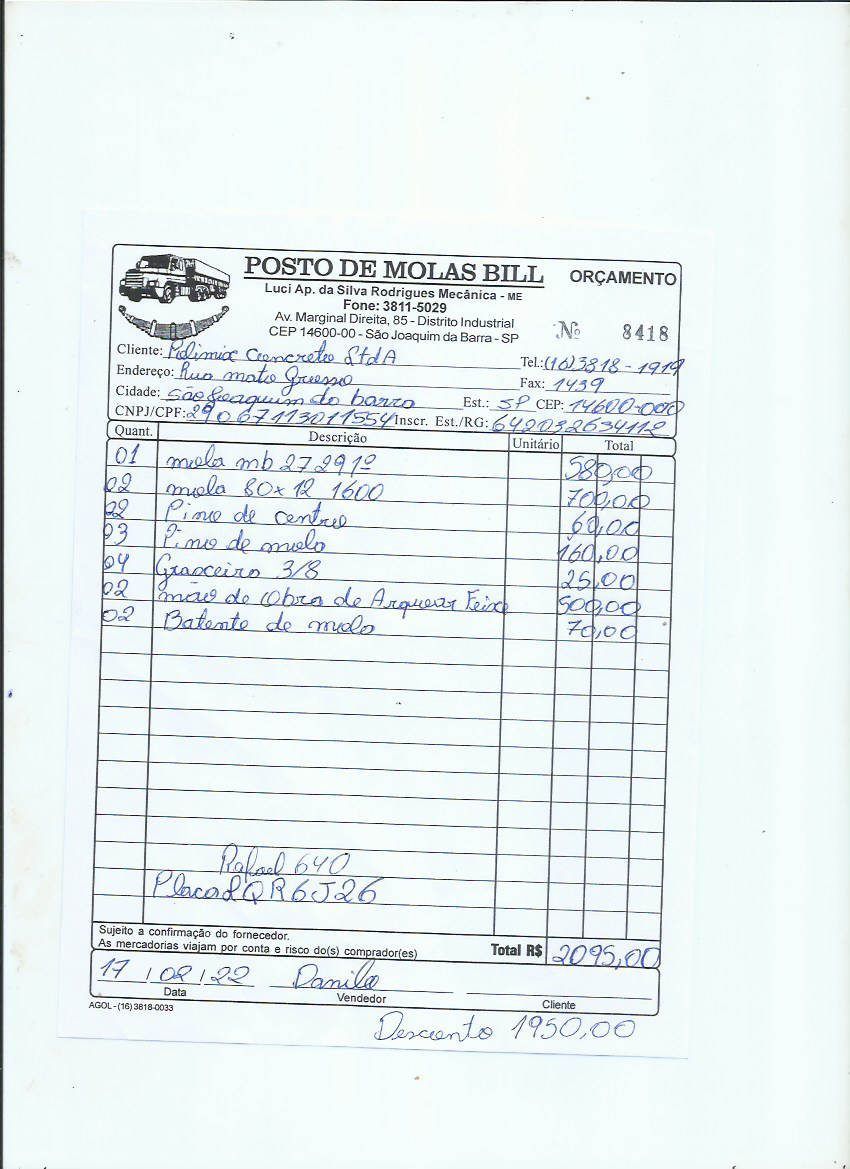 POSTO DE MOLAS BILL ORÇAMENTO
Luci Ap. da Silva Rodrigues Mecânica - ME
Fone: 3811-5029
Av. Marginal Direita, 85 - Distrito Industrial
CEP 14600-00 - São Joaquim da Barra - SP
Nº 8418
Cliente: Polimix Concreto LtdA Tel.: (16) 3818-1919
Endereço: Rua mato Grosso Fax: 1439
Cidade: São Joaquim da barra Est.: SP CEP: 14600-000
CNPJ/CPF: 29067113011554 Inscr. Est./RG: 642032634112
Quant. Descrição Unitário Total
01 mola mb 27291º 580,00
02 mola 80x12 1600 700,00
22 Pino de centro 60,00
03 Pino de mola 160,00
04 Graxeiro 3/8 25,00
02 mão de Obra de Arquear Feixe 500,00
02 Batente de mola 70,00
Rafael 640
Placa LQR6J26
Sujeito a confirmação do fornecedor.
As mercadorias viajam por conta e risco do(s) comprador(es) Total R$ 2095,00
17 / 02 / 22 Danilo
Data Vendedor Cliente
AGOL - (16) 3818-0033
Desconto 1950,00